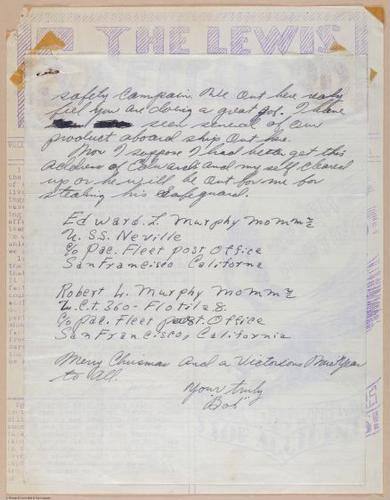 THE LEWIS
safety campain. We out here realy
feel you are doing a great job. I have
seen several of our
product aboard ship out here.
Now I suppose I had better get this
address of Edwards and my self cleared
up or he will be out for me for
stealing his Safeguard.
Edward L. Murphy MoMM 2/c
U.S.S. Neville
c/o Pac. Fleet Post Office
San Francisco California
Robert W. Murphy MoMM 2/c
L.C.T. 360 - Flotila 8.
c/o Pac. Fleet Post Office
San Francisco, California
Merry Chrismas and a Victorious
to All.
Your truly
"Bob"